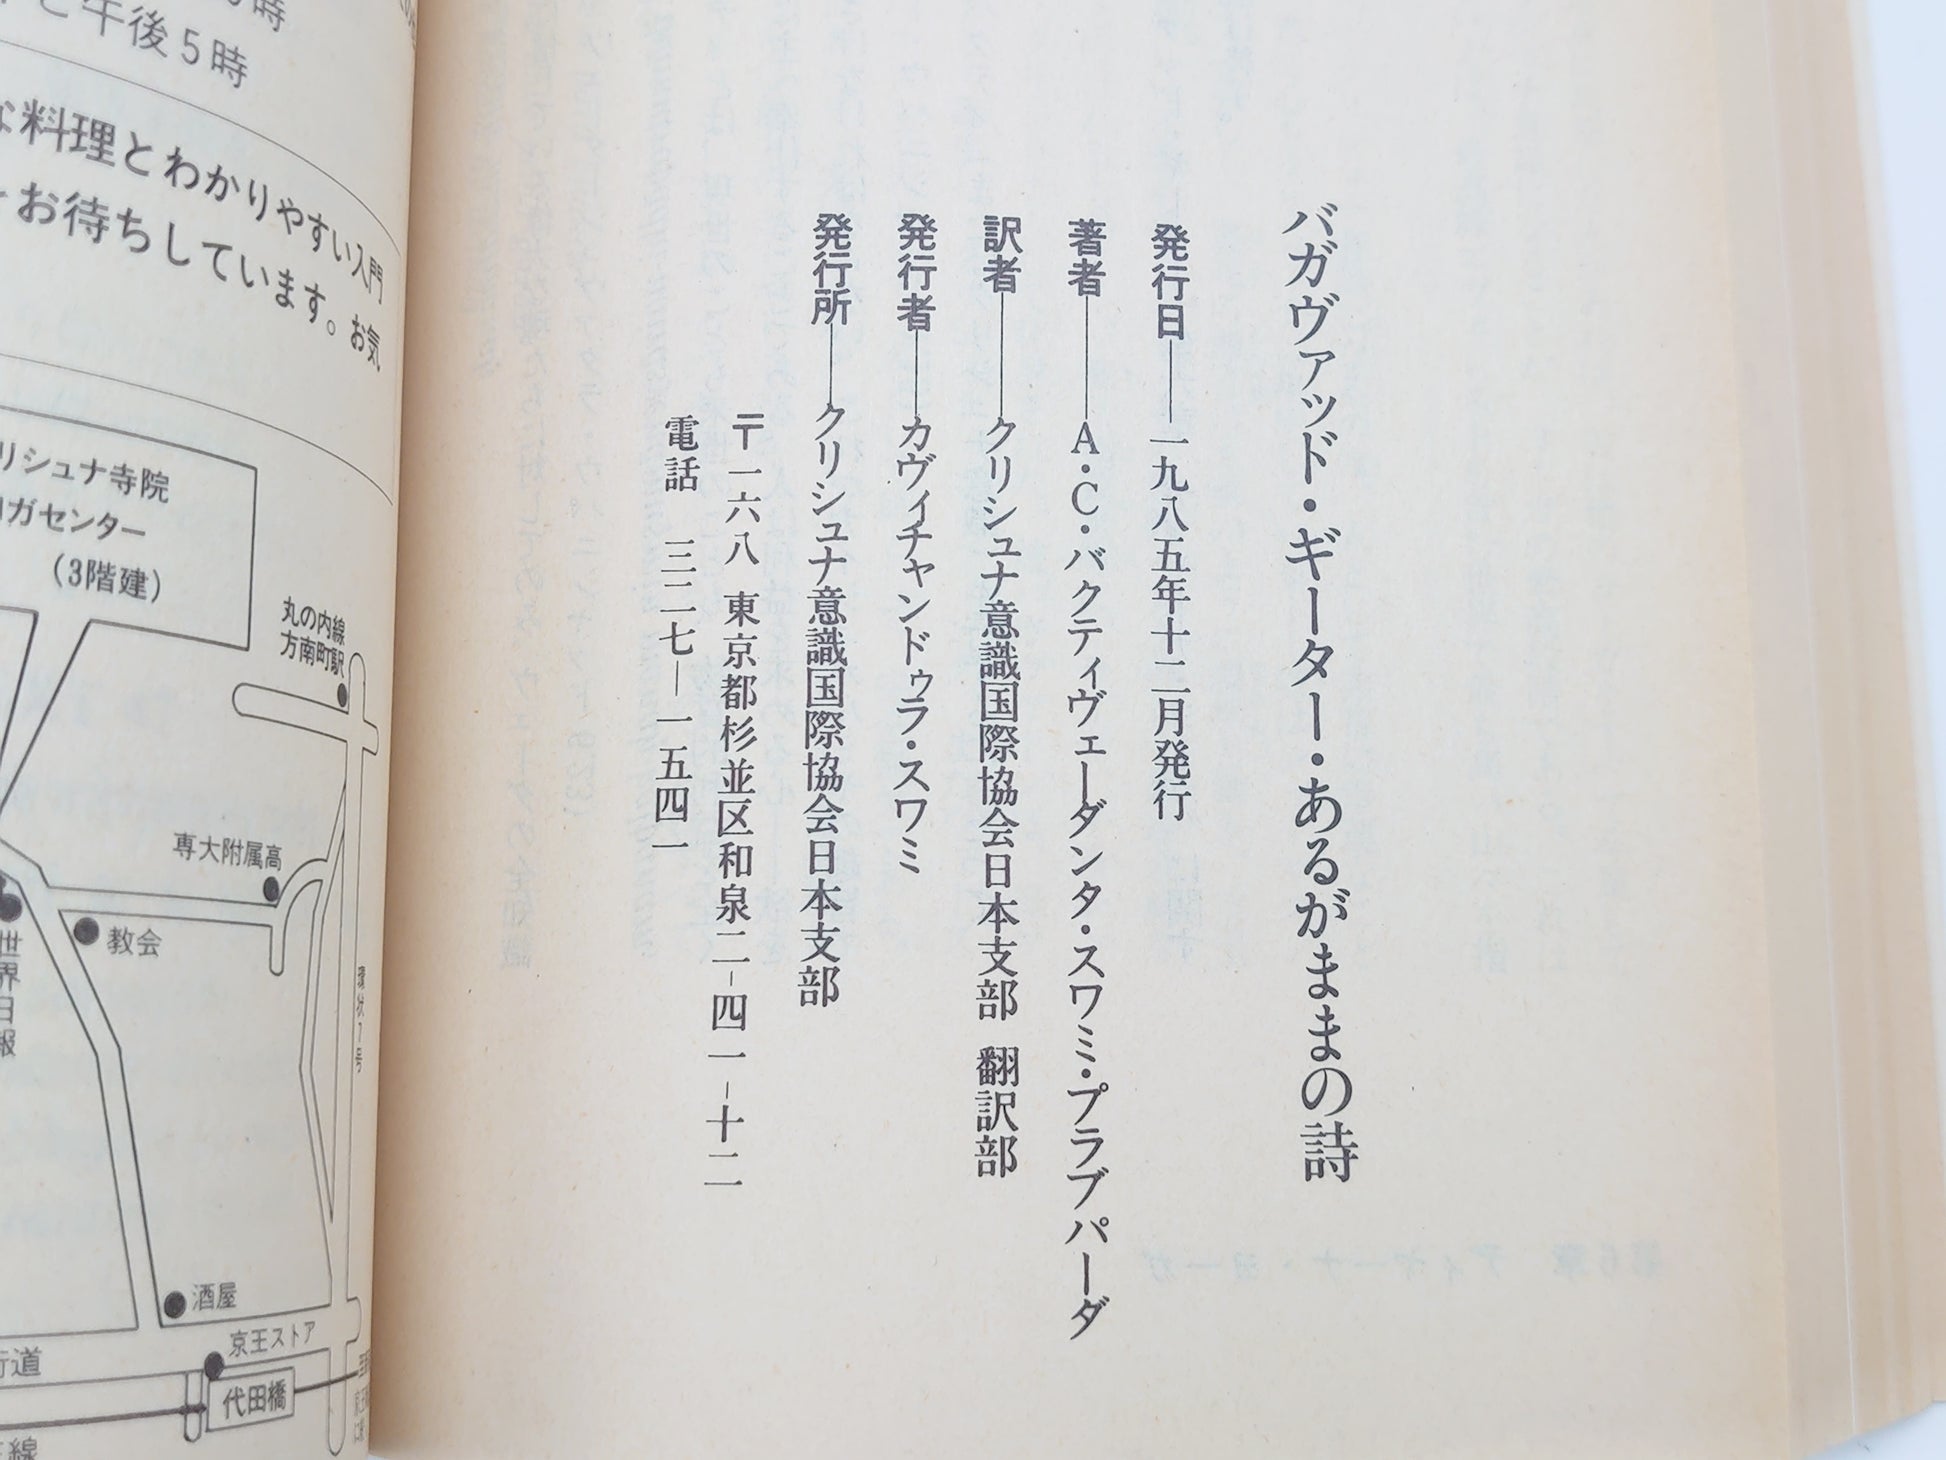 バガヴァッド・ギーター・あるがままの詩
発行日――一九八五年十二月発行
著者――A・C・バクティヴェーダンタ・スワミ・プラブパーダ
訳者――クリシュナ意識国際協会日本支部 翻訳部
発行者――カヴィチャンドゥラ・スワミ
発行所――クリシュナ意識国際協会日本支部
〒一六八 東京都杉並区和泉二-四一-十二
電話 三二七-一五四一
と午後5時
な料理とわかりやすい入門
お待ちしています。お気
リシュナ寺院
ヨガセンター
(3階建)
丸の内線
方南町駅
専大附属高
教会
世界日報
環状7号
酒屋
京王ストア
街道
代田橋
線